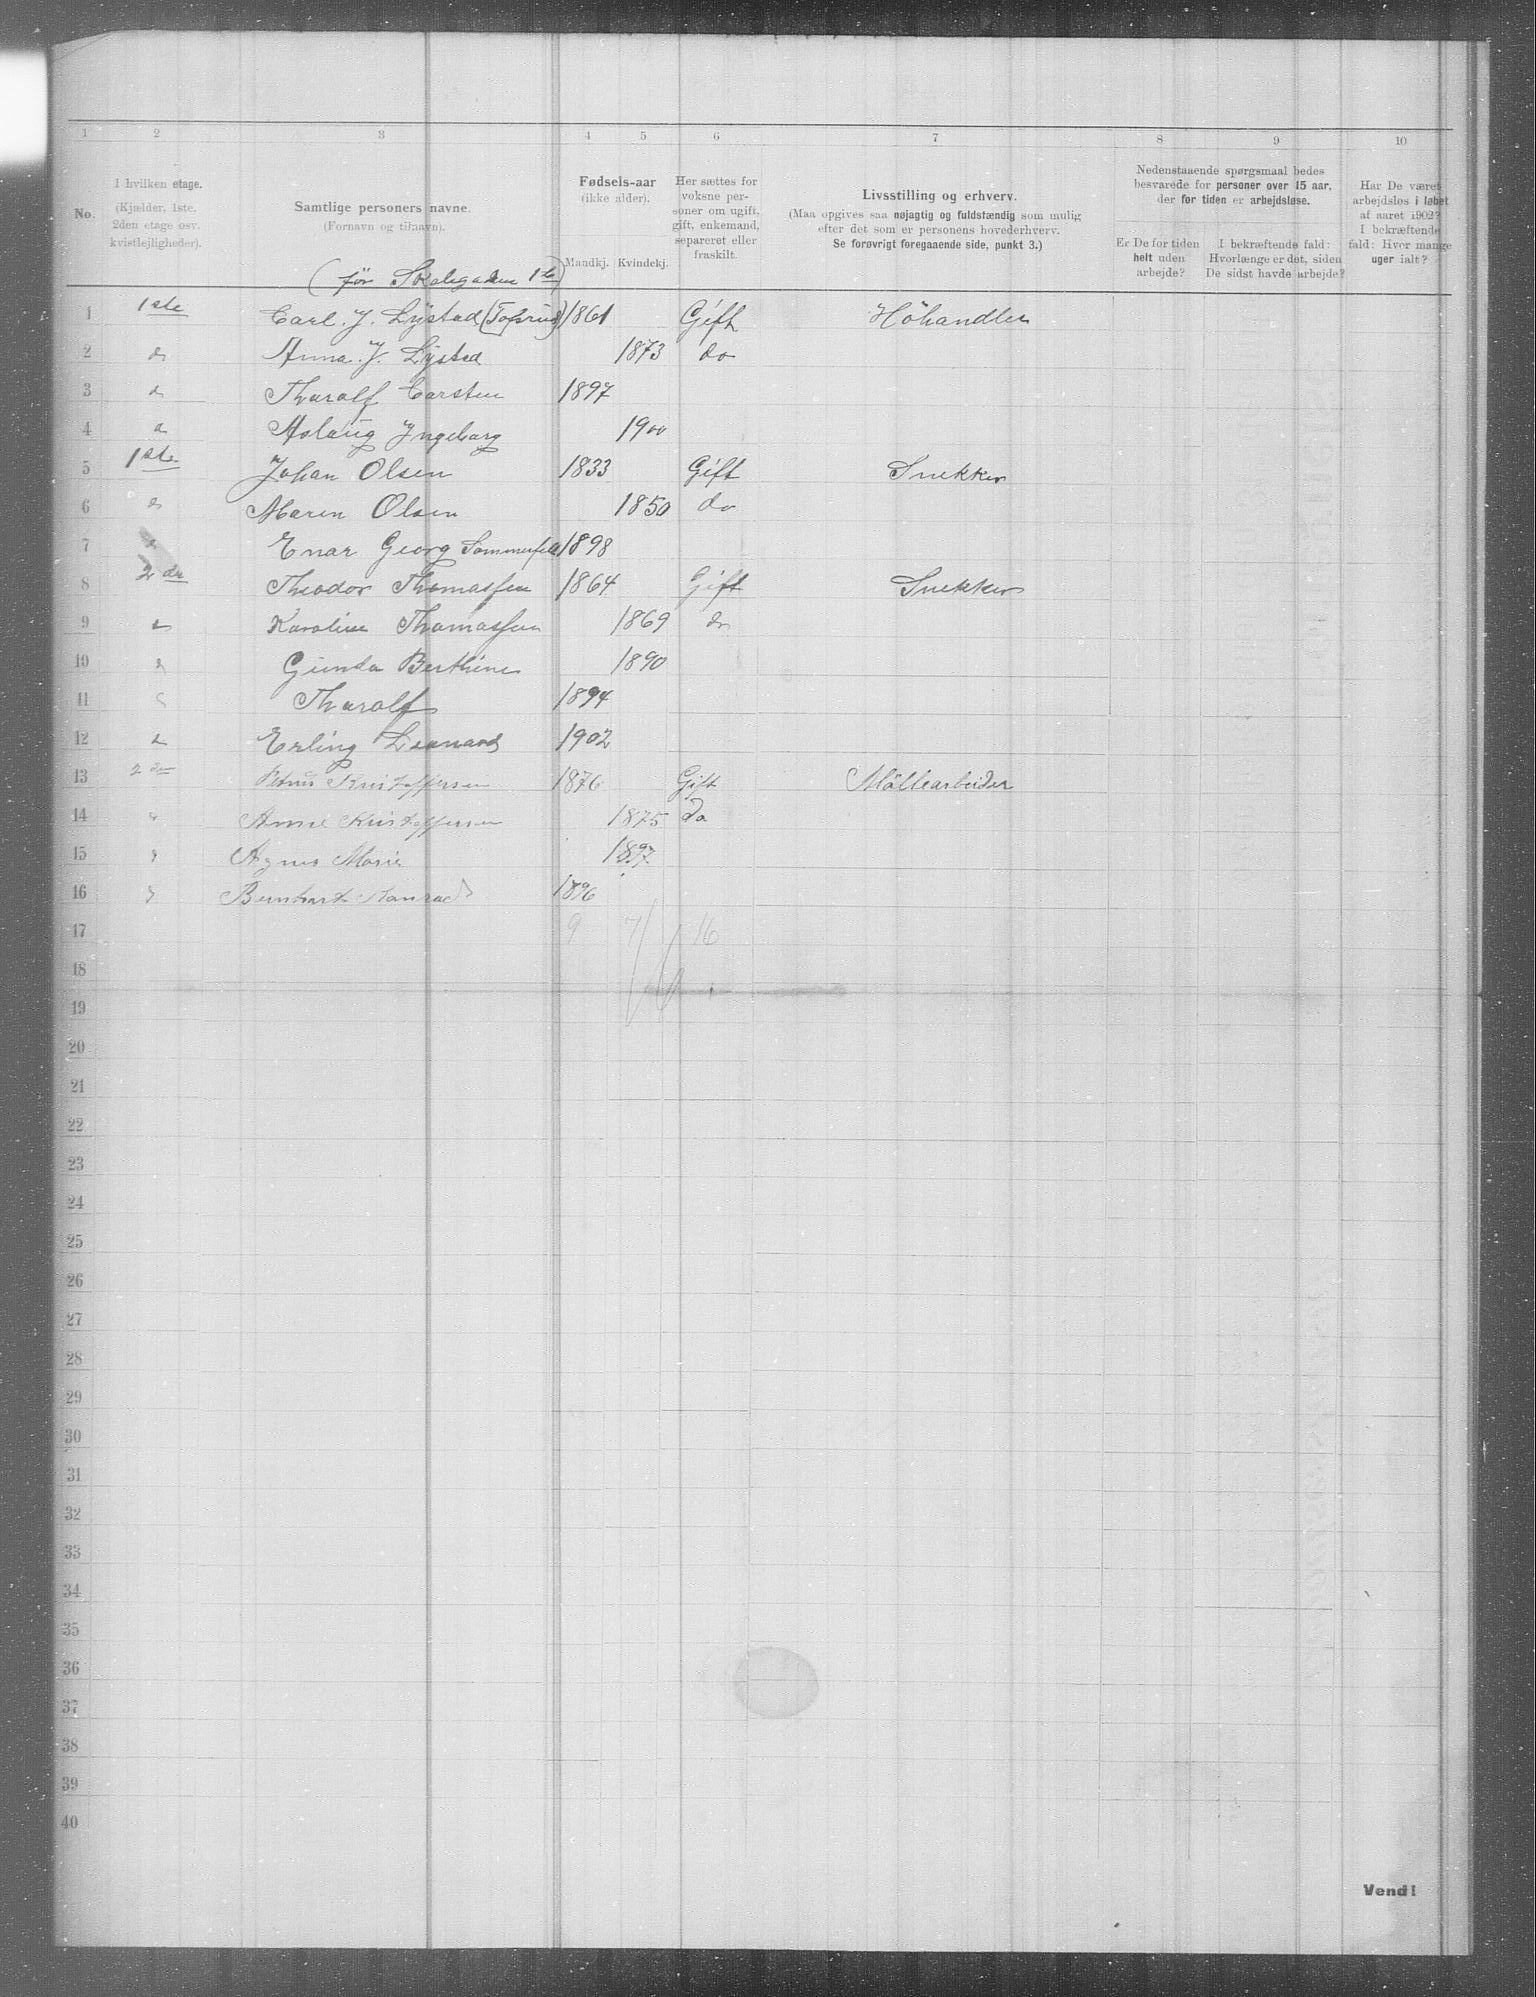 1 2 3 4 5 6 7 8 9 10
No.
I hvilken etage.
(Kjælder, 1ste.
2den etage osv.
kvistlejligheder).
Samtlige personers navne.
(Fornavn og tilnavn).
Fødsels-aar
(ikke alder).
Mandkj. Kvindekj.
Her sættes for
voksne per-
soner om ugift,
gift, enkemand,
separeret eller
fraskilt.
Livsstilling og erhverv.
(Maa opgives saa nøjagtig og fuldstændig som mulig
efter det som er personens hovederhverv.
Se forøvrigt foregaaende side, punkt 3.)
Nedenstaaende spørgsmaal bedes
besvarede for personer over 15 aar,
der for tiden er arbejdsløse.
Er De for tiden
helt uden
arbejde?
I bekræftende fald:
Hvorlænge er det, siden
De sidst havde arbejde?
Har De været
arbejdsløs i løbet
af aaret 1902?
I bekræftende
fald: Hvor mange
uger ialt?
(før
1 1ste Carl. J. Lÿstad 1861 Gift Höhandler
2 do Anna. J. Lÿstad 1873 do
3 do Tharalf Carsten 1897
4 do Aslaug Ingeborg 1900
5 1ste Johan Olsen 1833 Gift Snekker
6 do Maren Olsen 1850 do
7 Enar Georg Sommerfelt 1898
8 2den Theodor Thomassen 1864 Gift Snekker
9 do Karoline Thomassen 1869 do
10 do Gunda Berthine 1890
11 Tharalf 1894
12 do Erling Leonard 1902
13 2den Petrus Kristoffersen 1876 Gift Möllearbeider
14 Anne Kristoffersen 1875 Do
15 Agnes Marie 1897
16 Bernhart Konrad 1896
17 9 7 16
18
19
20
21
22
23
24
25
26
27
28
29
30
31
32
33
34
35
36
37
38
39
40
Vend!